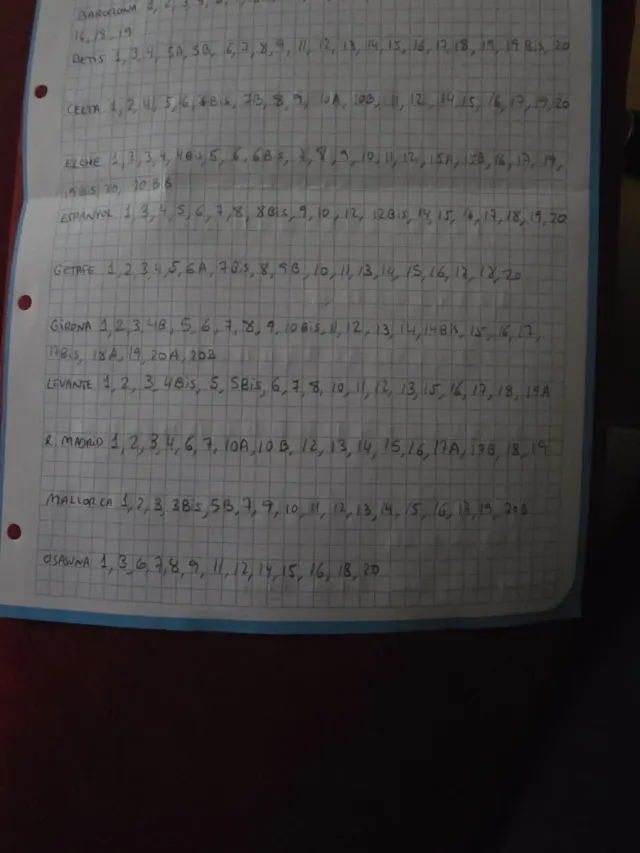 BARCELONA 1, 2, 3,
16, 18, 19
BETIS 1, 3, 4, 5A, 5B, 6, 7, 8, 9, 11, 12, 13, 14, 15, 16, 17, 18, 19, 19 Bis, 20
CELTA 1, 2, 4, 5, 6, 6Bis, 7B, 8, 9, 10A, 10B, 11, 12, 14, 15, 16, 17, 19, 20
ELCHE 1, 2, 3, 4, 4Bis, 5, 6, 6Bis, 7, 8, 9, 10, 11, 12, 15A, 15B, 16, 17, 19,
19 Bis, 20, 20 Bis
ESPANYOL 1, 3, 4, 5, 6, 7, 8, 8Bis, 9, 10, 12, 12Bis, 14, 15, 16, 17, 18, 19, 20
GETAFE 1, 2, 3, 4, 5, 6A, 7Bis, 8, 9B, 10, 11, 13, 14, 15, 16, 17, 18, 20
GIRONA 1, 2, 3, 4B, 5, 6, 7, 8, 9, 10Bis, 11, 12, 13, 14, 14Bis, 15, 16, 17,
17Bis, 18A, 19, 20A, 20B
LEVANTE 1, 2, 3, 4Bis, 5, 5Bis, 6, 7, 8, 10, 11, 12, 13, 15, 16, 17, 18, 19A
R. MADRID 1, 2, 3, 4, 6, 7, 10A, 10B, 12, 13, 14, 15, 16, 17A, 17B, 18, 19
MALLORCA 1, 2, 3, 3Bis, 5B, 7, 9, 10, 11, 12, 13, 14, 15, 16, 17, 19, 20B
OSASUNA 1, 3, 6, 7, 8, 9, 11, 12, 14, 15, 16, 18, 20